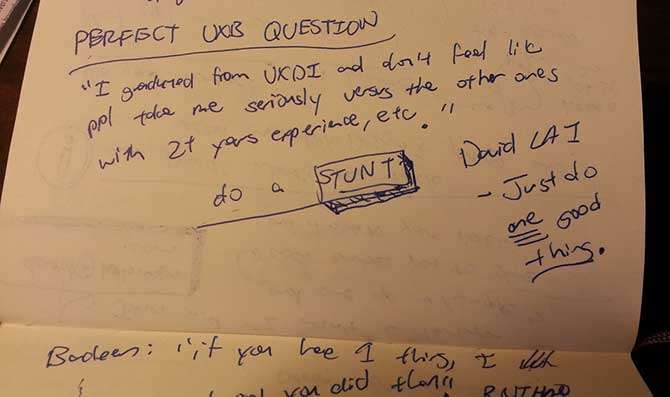 PERFECT UXB QUESTION
"I graduated from UXDI and don't feel like
ppl take me seriously versus the other ones
with 2+ years experience, etc."
do a STUNT
David LAI
- Just do
one good
thing.
if you 1 thing, I
you did